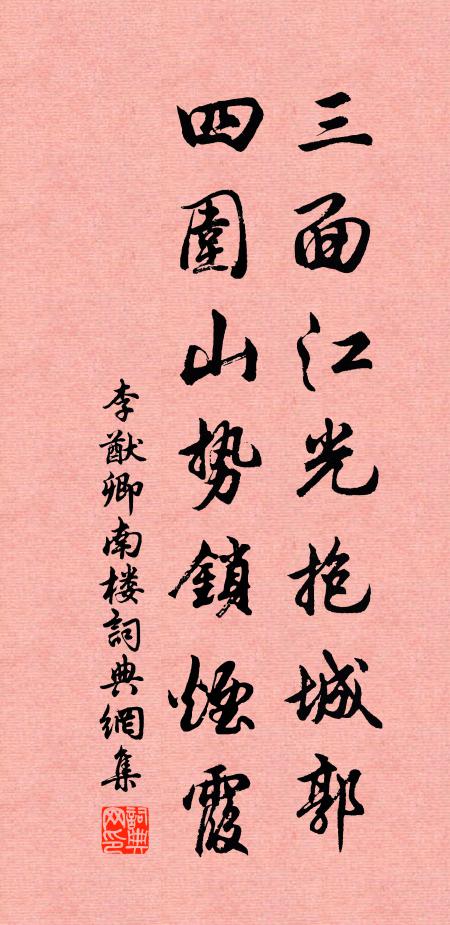 三面江光抱城郭
四圍山势鎖煙霞
李猷卿南楼詞典網集
詞典网印